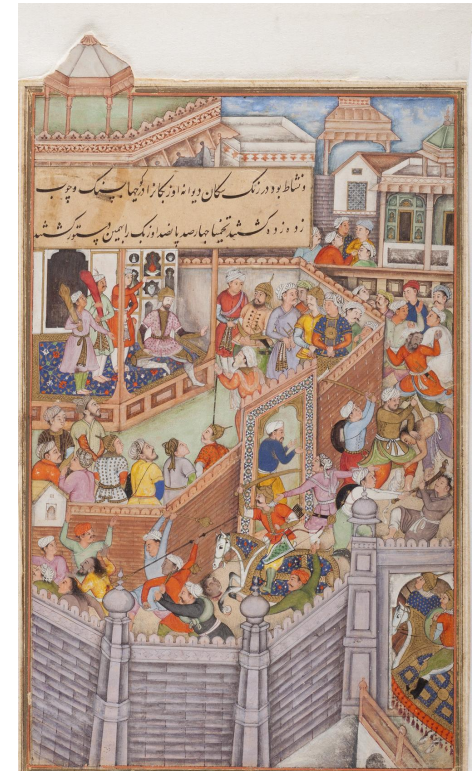 و نشاط بود در رنگ سگان دیوانه اوزبکانرا در کوچها بسنگ و چوب
زده زده کشتند تخمیناً چهار صد پانصد اوزبک را بهمین دستور کشتند